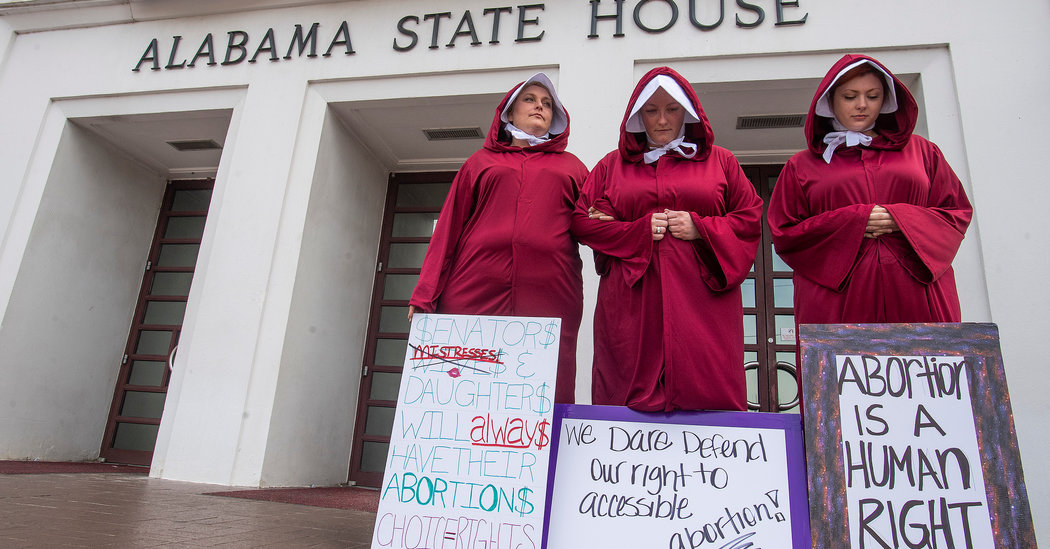 ALABAMA STATE HOUSE
$ENATOR$
MISTRESSES
WIVE$ &
DAUGHTER$
WILL alway$
HAVE THEIR
ABORTION$
CHOICE=RIGHTS
We Dare Defend
our right to
accessible
abortion!
ABORTION
IS A
HUMAN
RIGHT